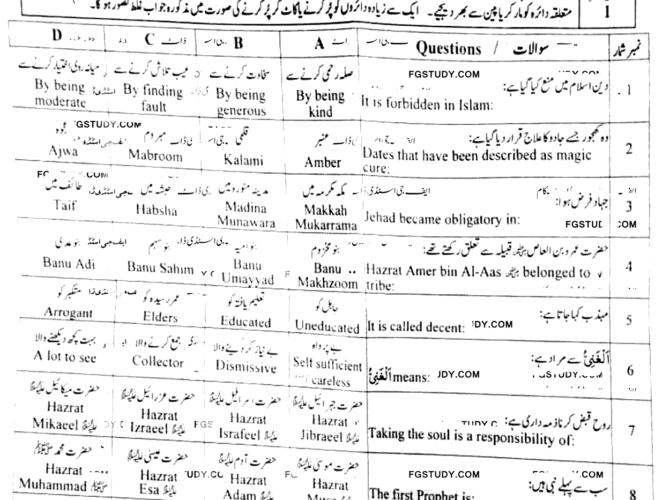 متعلقہ دائرہ کو مارکر یا پین سے بھر دیجیے۔ ایک سے زیادہ دائروں کو پُر کرنے یا کاٹ کر پُر کرنے کی صورت میں مذکورہ جواب غلط تصور ہو گا۔
1
نمبر شمار Questions / سوالات A B C D
1. دین اسلام میں منع کیا گیا ہے: صلہ رحمی کرنے سے سخاوت کرنے سے عیب تلاش کرنے سے میانہ روی اختیار کرنے سے
FGSTUDY.COM
It is forbidden in Islam: By being kind By being generous By finding fault By being moderate
2 وہ کھجور جسے جادو کا علاج قرار دیا گیا ہے: عنبر قلمی مبروم عجوہ
FGSTUDY.COM
Dates that have been described as magic cure: Amber Kalami Mabroom Ajwa
3 جہاد فرض ہوا: مکہ مکرمہ میں مدینہ منورہ میں حبشہ میں طائف میں
Jehad became obligatory in: Makkah Mukarrama Madina Munawara Habsha Taif
4 حضرت عمرو بن العاص قبیلہ سے تعلق رکھتے تھے: بنو مخزوم بنو امیہ بنو سہم بنو عدی
Hazrat Amer bin Al-Aas belonged to tribe: Banu Makhzoom Banu Umayyad Banu Sahim Banu Adi
5 مہذب کہا جاتا ہے: جاہل کو تعلیم یافتہ کو عمر رسیدہ کو متکبر کو
It is called decent: Uneducated Educated Elders Arrogant
6 اَلْغَنِیُّ سے مراد ہے: بے پرواہ بے نیاز کر دینے والا جمع کرنے والا بہت کچھ دیکھنے والا
اَلْغَنِیُّ means: Self sufficient careless Dismissive Collector A lot to see
7 روح قبض کرنا ذمہ داری ہے: حضرت جبرائیل حضرت اسرافیل حضرت عزرائیل حضرت میکائیل
Taking the soul is a responsibility of: Hazrat Jibraeel Hazrat Israfeel Hazrat Izraeel Hazrat Mikaeel
8 سب سے پہلے نبی ہیں: حضرت موسیٰ حضرت آدم حضرت عیسیٰ حضرت محمد
FGSTUDY.COM
The first Prophet is: Hazrat Hazrat Adam Hazrat Esa Hazrat Muhammad